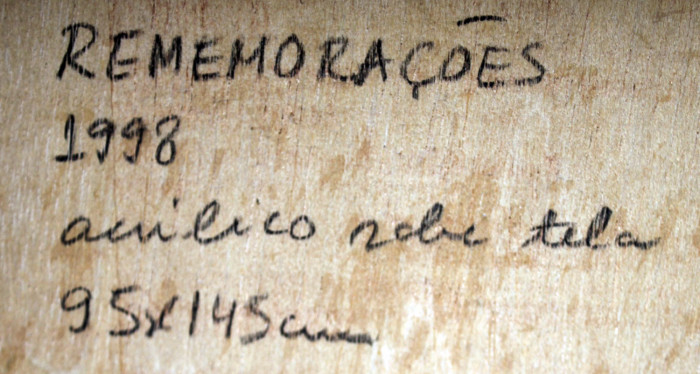 REMEMORAÇÕES
1998
acrílico sobre tela
95x145cm